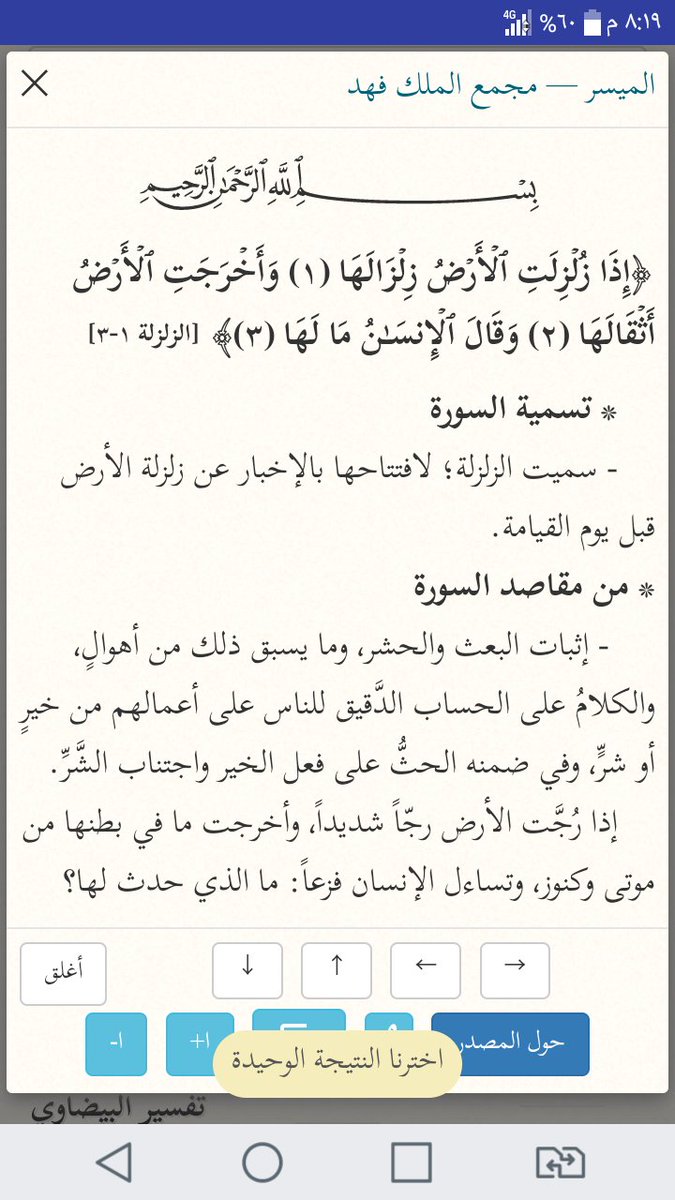 ٨:١٩ م ٦٠% 4G
الميسر — مجمع الملك فهد
بِسْمِ ٱللَّهِ ٱلرَّحْمَٰنِ ٱلرَّحِيمِ
﴿إِذَا زُلْزِلَتِ ٱلْأَرْضُ زِلْزَالَهَا (١) وَأَخْرَجَتِ ٱلْأَرْضُ
أَثْقَالَهَا (٢) وَقَالَ ٱلْإِنسَٰنُ مَا لَهَا (٣)﴾ [الزلزلة ١-٣]
* تسمية السورة
- سميت الزلزلة؛ لافتتاحها بالإخبار عن زلزلة الأرض
قبل يوم القيامة.
* من مقاصد السورة
- إثبات البعث والحشر، وما يسبق ذلك من أهوالٍ،
والكلامُ على الحساب الدَّقيق للناس على أعمالهم من خيرٍ
أو شرٍّ، وفي ضمنه الحثُّ على فعل الخير واجتناب الشَّرِّ.
إذا رُجَّت الأرض رجّاً شديداً، وأخرجت ما في بطنها من
موتى وكنوز، وتساءل الإنسان فزعاً: ما الذي حدث لها؟
→ ← ↑ ↓ أغلق
حول المصدر ا+ ا-
اخترنا النتيجة الوحيدة
تفسير البيضاوي